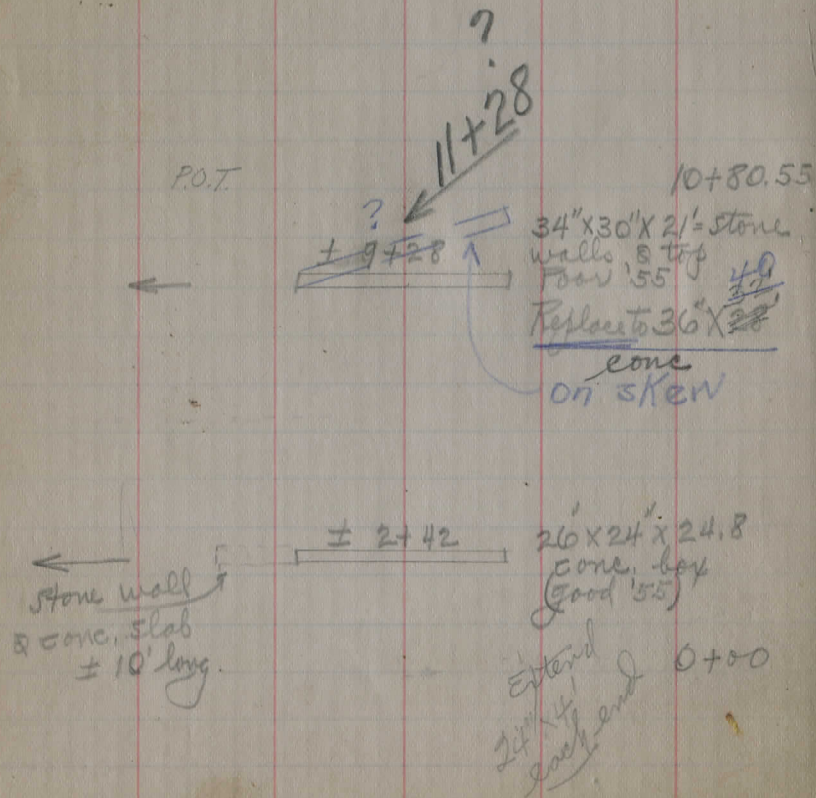 ?
11+28
P.O.T.
10+80.55
?
± 9+28
34"X30"X21'= stone
walls & top
Poor '55
40
Replace to 36"X28'
conc
on skew
± 2+42
26"X24"X24.8
conc. box
(good '55)
stone wall
& conc. slab
± 10' long.
Extend
24"X4'
each end
0+00